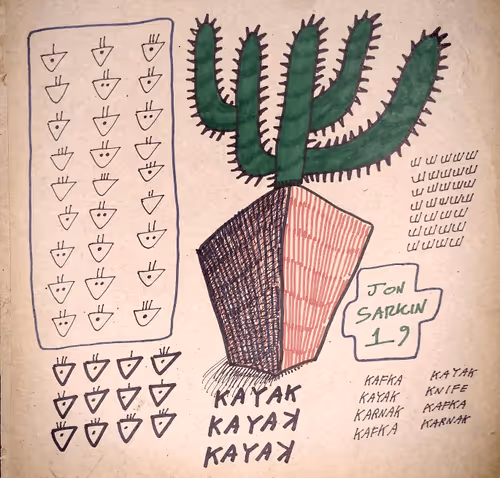 ꟺ ꟺ ꟺ ꟺ ꟺ
JON
SARKIN
19
KAYAK
KAYAK
KAYAK
KAFKA
KAYAK
KARNAK
KAFKA
KAYAK
KNIFE
KAFKA
KARNAK